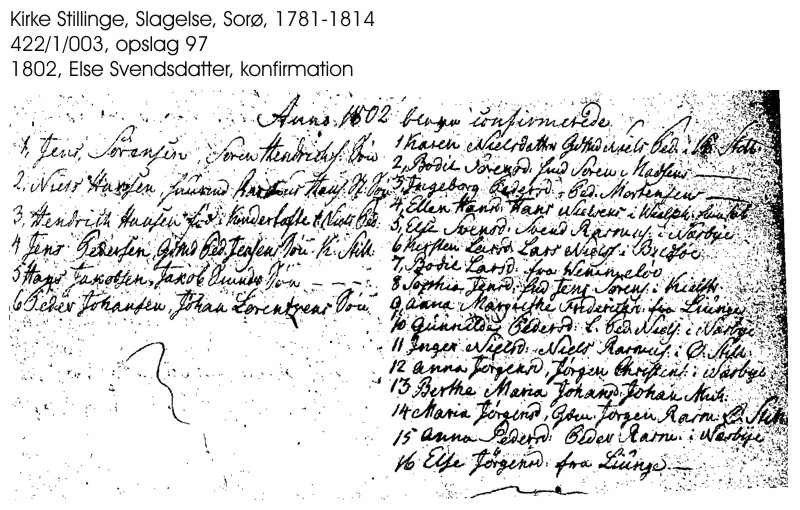 Kirke Stillinge, Slagelse, Sorø, 1781-1814
422/1/003, opslag 97
1802, Else Svendsdatter, konfirmation
Anno 1802 confirmerede
1, Jens Sørensen, Søren Hendrichs: Søn
2, Niels Hansen, Søn
3, Hendrich Hansen Niels Ped:
4 Jens Pedersen, Gmd Ped. Jensens Søn K. Still:
5 Hans Jakobsen, Jakob Søn
6 Peder Johansen, Johan Lorentzens Søn
1 Karen Nielsdattr Gmd Niels Ped: i Still:
2, Bodil Sørensd: Søren Madsens
3, Ingeborg Pedersd: Ped: Mortensens
4, Ellen Hansd: Hans
5, Else Svensd: Svend Rasmus: i Næsbye
6 Kirsten Larsd: Lars Niels: i
7, Bodil Larsd: fra
8 Sophia Jensd: Jens Sørens: i
9 Anna Margrethe Frideriksen fra Liunge
10 Gunnild Pedersd: Ped. Niels: i Næsbye
11 Inger Nielsd: Niels Rasmus: i Ø. Still:
12 Anna Jörgensd, Jörgen Christens: i Næsbye
13 Berthe Maria Johansd, Johan
14 Maria Jörgensd, Jörgen Rasm: Still:
15 Anna Pedersd: Peder Rasm: i Næsbye
16 Else Jörgensd: fra Liunge